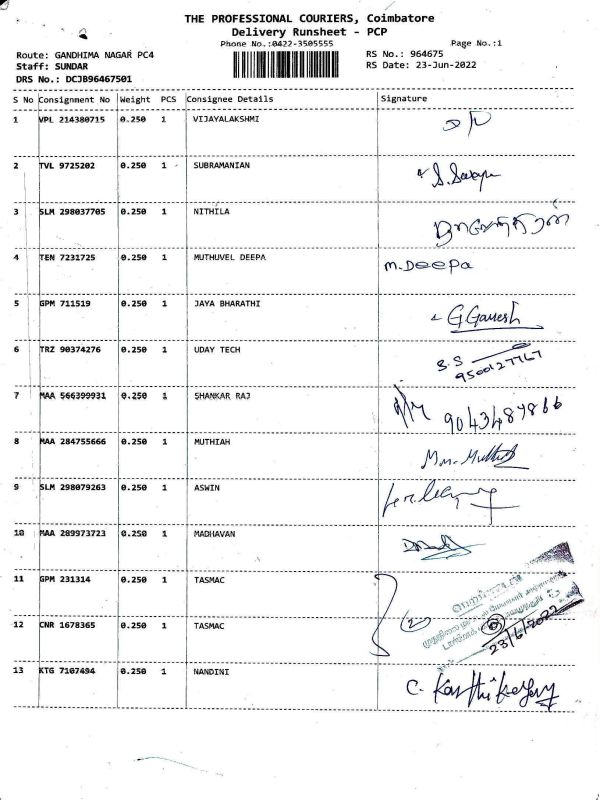 THE PROFESSIONAL COURIERS, Coimbatore
Delivery Runsheet - PCP
Phone No.:0422-3505555
Page No.:1
Route: GANDHIMA NAGAR PC4
RS No.: 964675
Staff: SUNDAR
RS Date: 23-Jun-2022
DRS No.: DCJB96467501
S No Consignment No Weight PCS Consignee Details Signature
1 VPL 214380715 0.250 1 VIJAYALAKSHMI
2 TVL 9725202 0.250 1 SUBRAMANIAN
3 SLM 298037705 0.250 1 NITHILA
4 TEN 7231725 0.250 1 MUTHUVEL DEEPA M.Deepa
5 GPM 711519 0.250 1 JAYA BHARATHI G.Ganesh
6 TRZ 90374276 0.250 1 UDAY TECH S.S
9500127767
7 MAA 566399931 0.250 1 SHANKAR RAJ 9043489866
8 MAA 284755666 0.250 1 MUTHIAH
9 SLM 298079263 0.250 1 ASWIN
10 MAA 289973723 0.250 1 MADHAVAN
11 GPM 231314 0.250 1 TASMAC
12 CNR 1678365 0.250 1 TASMAC 2
23/6/2022
13 KTG 7107494 0.250 1 NANDINI C. Karthikeyan